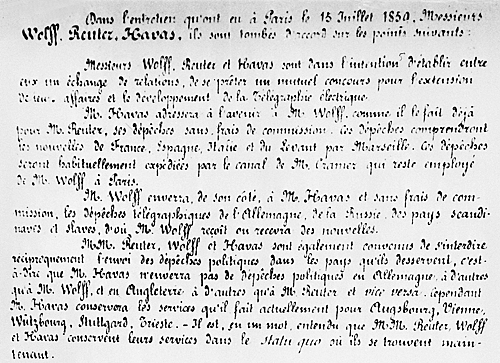 Dans l'entretien qu'ont eu à Paris le 15 Juillet 1859, Messieurs
Wolff, Reuter, Havas, ils sont tombés d'accord sur les points suivants:
Messieurs Wolff, Reuter et Havas sont dans l'intention d'établir entre
eux un échange de relations, de se prêter un mutuel concours pour l'extension
de leurs affaires et le développement de la Télégraphie électrique.
M. Havas adressera à l'avenir à M. Wolff, comme il le fait déjà
pour M. Reuter, ses dépêches sans frais de commission. Ces dépêches comprendront
les nouvelles de France, Espagne, Italie et du Levant par Marseille. Ces dépêches
seront habituellement expédiées par le canal de M. Cramer qui reste employé
de M. Wolff à Paris.
M. Wolff enverra, de son côté, à M. Havas et sans frais de com-
mission, les dépêches télégraphiques de l'Allemagne, de la Russie, des pays scandi-
naves et slaves, d'où M. Wolff reçoit ou recevra des nouvelles.
M.M. Reuter, Wolff et Havas sont également convenus de s'interdire
réciproquement l'envoi des dépêches politiques dans les pays qu'ils desservent, c'est-
à-dire que M. Havas n'enverra pas de dépêches politiques en Allemagne à d'autres
qu'à M. Wolff, et en Angleterre à d'autres qu'à M. Reuter et vice versa. Cependant
M. Havas conservera les services qu'il fait actuellement pour Augsbourg, Vienne,
Wützbourg, Stuttgard, Trieste. - Il est, en un mot, entendu que M.M. Reuter, Wolff
et Havas conservent leurs services dans le statu quo où ils se trouvent main-
tenant.